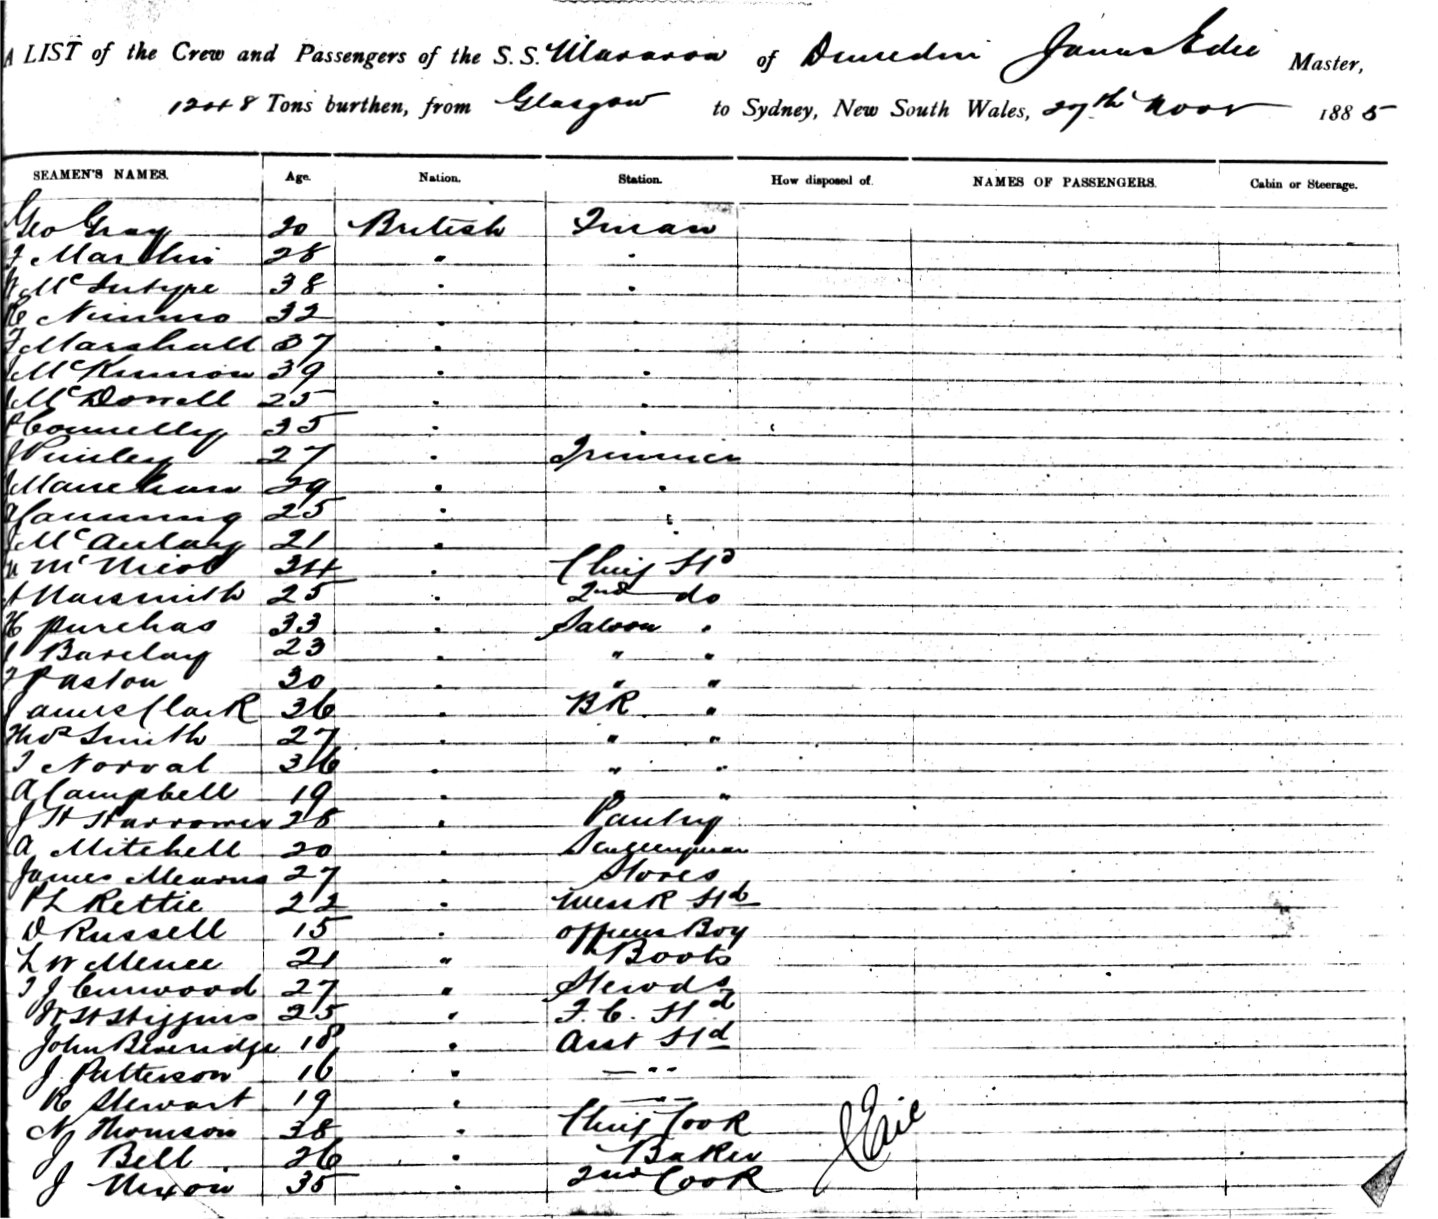 A LIST of the Crew and Passengers of the S.S. Mararoa of Dunedin James Edie Master,
1248 Tons burthen, from Glasgow to Sydney, New South Wales, 27th Novr 1885
SEAMEN'S NAMES. Age. Nation. Station. How disposed of. NAMES OF PASSENGERS. Cabin or Steerage.
Geo Gray 20 British Fman
Martin 28 " "
McIntyre 38 " "
Nimmo 32 "
Marshall 37 " "
McKinnon 39 " "
McDowell 25 " "
Connelly 35 " "
27 " Trimmer
29 " "
25 " "
McAulay 21 " "
24 " Chief Std
25 " 2nd do
H Purchas 33 " Saloon "
Barclay 23 " " "
Paston 30 " " "
James Clark 36 " BR "
Thos Smith 27 " " "
Norval 36 " " "
A Campbell 19 " " "
J H Harrower 28 " Pantry
A Mitchell 20 " Sculleryman
James Mearns 27 " Stores
P L Rettie 22 " MessR Std
D Russell 15 " Officers Boy
L W Mence 21 " Boots
T J Curwood 27 " Stewds
W H Higgins 25 " F. C. Std
John Beveridge 18 " Asst Std
J Patterson 16 " — " "
R Stewart 19 " — " —
N Thomson 38 " Chief Cook
J Bell 26 " Baker
J Nixon 35 " 2nd Cook
JEdie